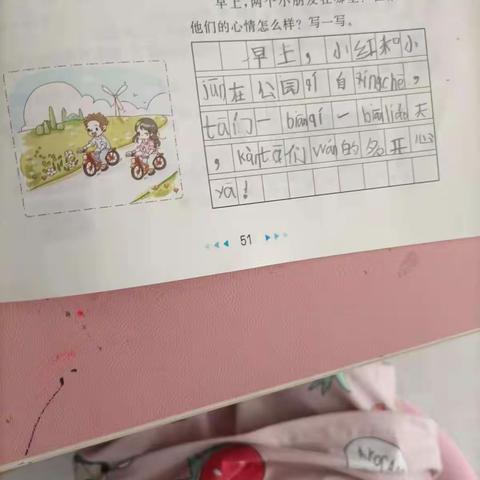 早上，两个小朋友在哪里？
他们的心情怎么样？写一写。
早上，小红和小
jūn在公园qí自xíngchē，
tā们一biānqí一biānliáo天
，kàntā们wán的多开心
yā！
51